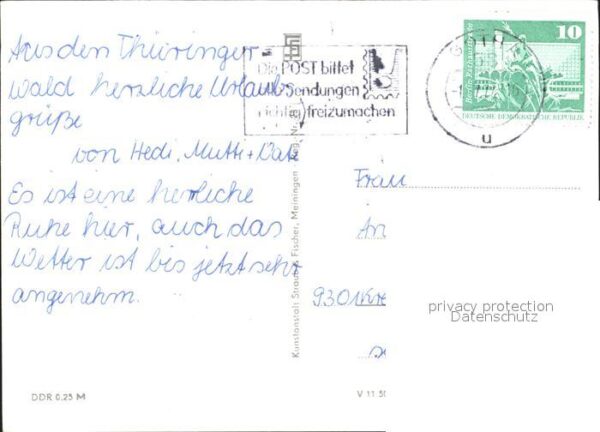 Aus den Thüringer
wald herzliche Urlaubs
grüße
von Hedi, Mutti + Vati
Es ist eine herrliche
Ruhe hier, auch das
Wetter ist bis jetzt sehr
angenehm.
DDR 0,25 M
Die POST bittet
Sendungen
freizumachen
Kunstanstalt Straub & Fischer, Meiningen
Reg. Nr.
V 11 50
GOTHA
u
10
Berlin, Rathausstraße
DEUTSCHE DEMOKRATISCHE REPUBLIK
Frau
930
privacy protection
Datenschutz